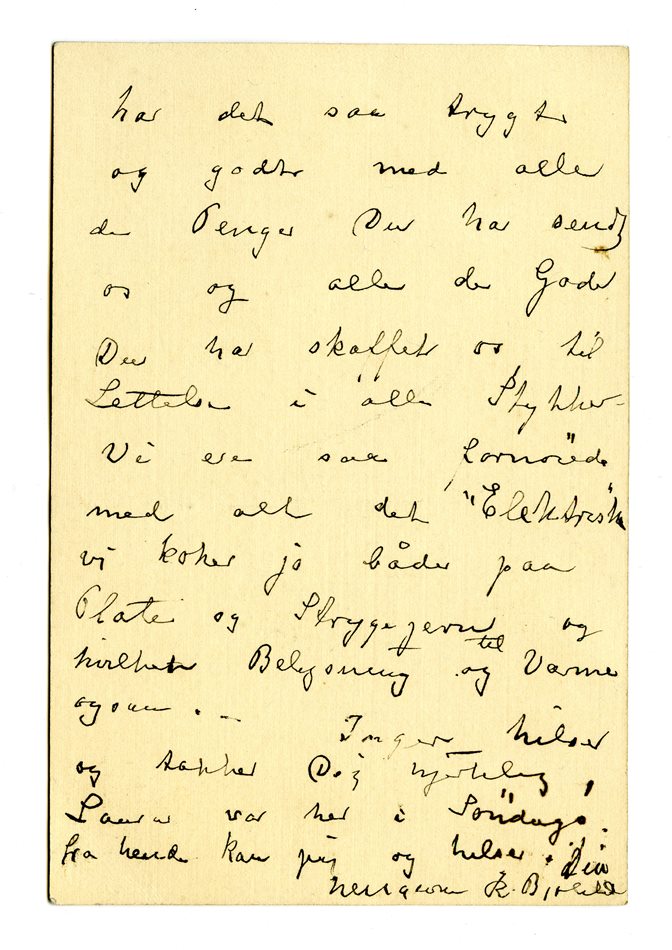 har det saa trygt
og godt med alle
de Penger Du har sendt
os og alle de Goder
Du har skaffet os til
Lettelse i alle Stykker -
Vi ere saa fornöiede
med alt det "Elektriske"
vi koker jo både paa
Plate og Strygejern og
hvilken Belysning og til Varme
ogsaa . - Inger hilser
og takker Dig hjertelig,
Laura var her i Söndags.
fra hende kan jeg og hilse. Din
hengivne K. Bjölstad